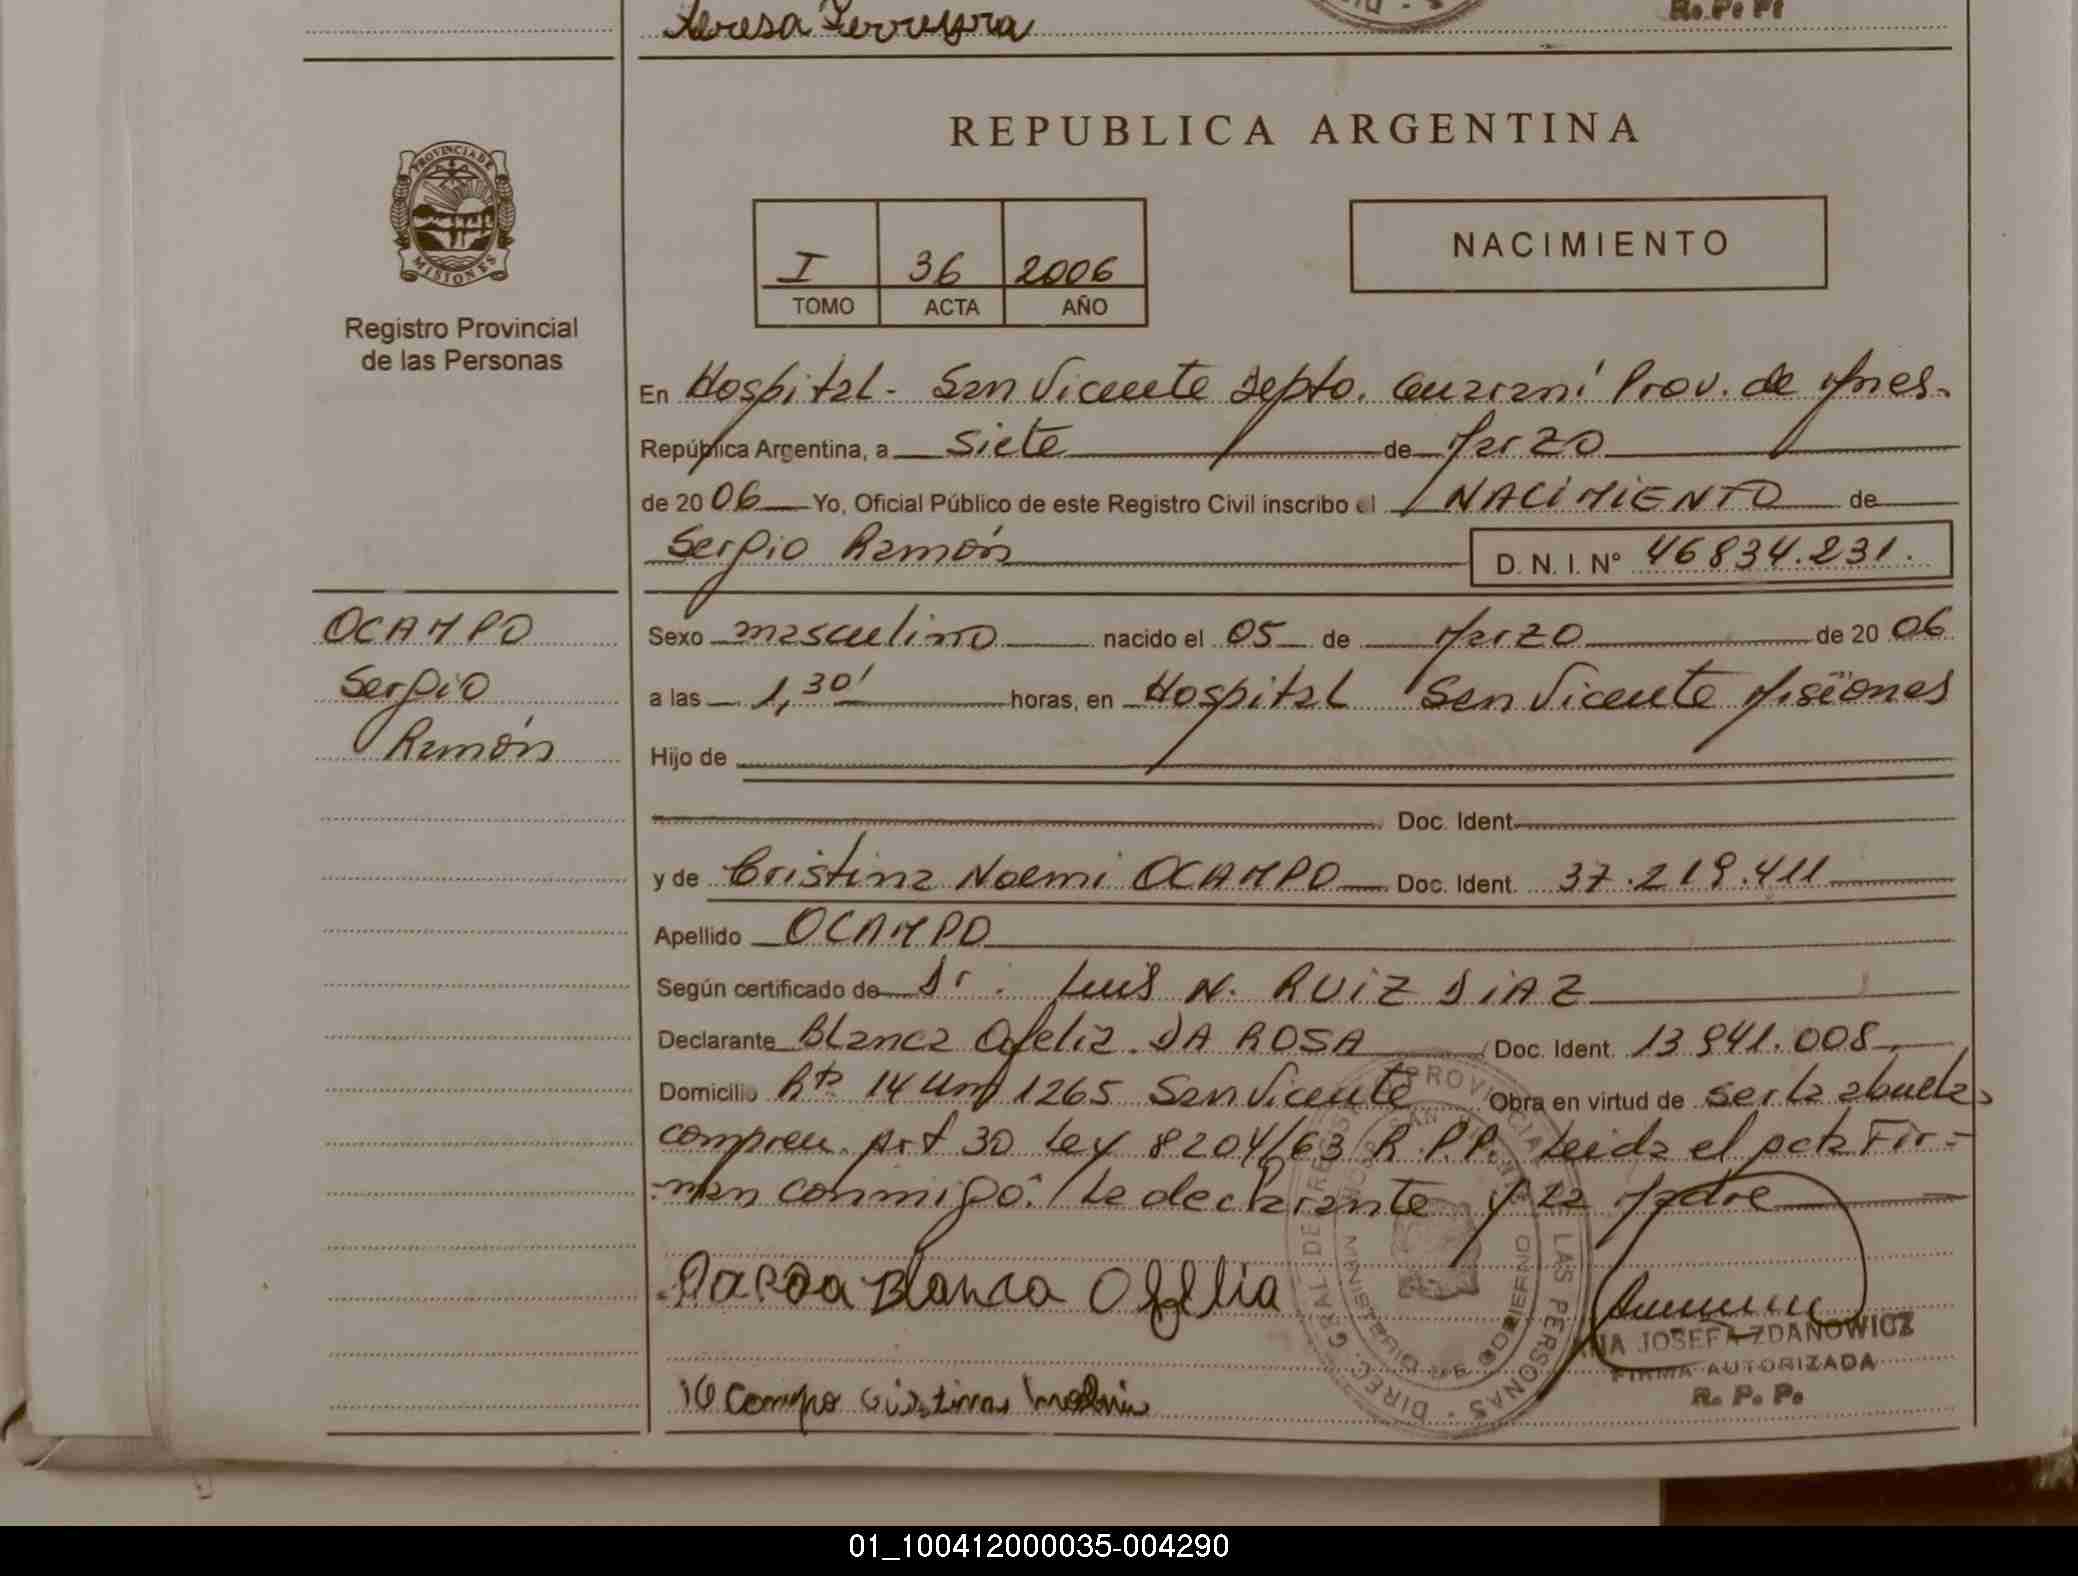 Teresa Ferreyra
R. P. P.
REPUBLICA ARGENTINA
PROVINCIA DE
MISIONES
Registro Provincial
de las Personas
I 36 2006
TOMO ACTA AÑO
NACIMIENTO
En Hospital - San Vicente Depto. Guaraní Prov. de Mnes.
República Argentina, a siete de Marzo
de 2006 Yo, Oficial Público de este Registro Civil inscribo el NACIMIENTO de
Sergio Ramón D. N. I. Nº 46834.231.
OCAMPO
Sergio
Ramón
Sexo masculino nacido el 05 de Marzo de 2006
a las 1,30' horas, en Hospital San Vicente Misiones
Hijo de
Doc. Ident.
y de Cristina Noemi OCAMPO Doc. Ident. 37.219.411
Apellido OCAMPO
Según certificado de Dr. Luis N. RUIZ DIAZ
Declarante Blanca Ofelia DA ROSA Doc. Ident. 13 941.008
Domicilio Rta 14 Km 1265 San Vicente Obra en virtud de ser la abuela
compren. Art 30 Ley 8204/63 R.P.P. Leida el acta Fir=
=man conmigo: La declarante y la Madre
Blanca Ofelia
Ocampo Cristina
DIREC. GRAL DE REGISTRO PROVINCIAL DE LAS PERSONAS
ANA JOSEFA ZDANOWICZ
FIRMA AUTORIZADA
R. P. P.
01_100412000035-004290